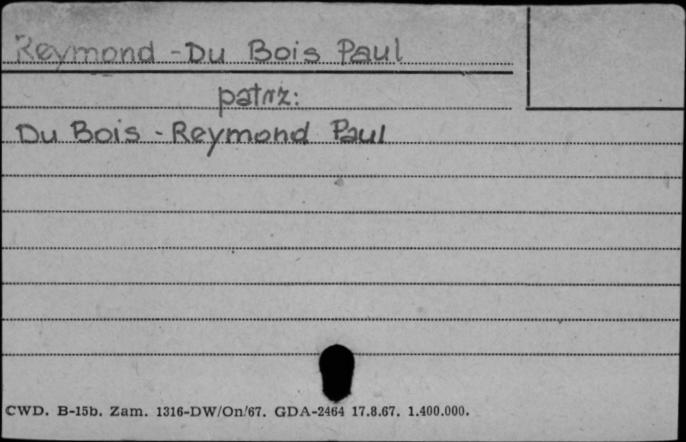 Reymond - Du Bois Paul
patrz:
Du Bois - Reymond Paul
CWD. B-15b. Zam. 1316-DW/On/67. GDA-2464 17.8.67. 1.400.000.